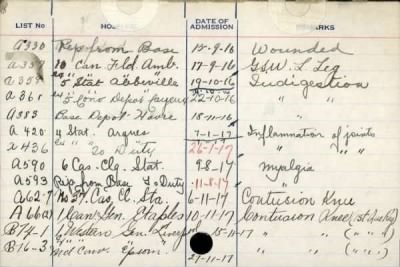 LIST NO HOSPITAL DATE OF ADMISSION REMARKS
A330 Rep from Base 12-9-16 Wounded
10 Can Fld. Amb. 17-9-16 GSW. L Leg
A359 5 Stat Abbeville 19-10-16 Indigestion
A361 5 Conv Depot Cayeux 22-10-16 " "
A383 Base Depot Havre 15-11-16 "
A420 4 Stat. Arques 7-1-17 Inflammation of joints
A436 " " To Duty 26-1-17 " " "
A590 6 Cas. Clg. Stat. 9-8-17 Myalgia
A593 Rep from Base To Duty 11-8-17 "
A627 No 37. Cas. Cl. Sta. 6-11-17 Contusion Knee
A66a1 1 Can. Gen. Etaples 10-11-17 Contusion Knee
B74-1 1 Western Gen. 15-11-17 " "
B76-3 Conv. Epsom. 21-11-17 " "